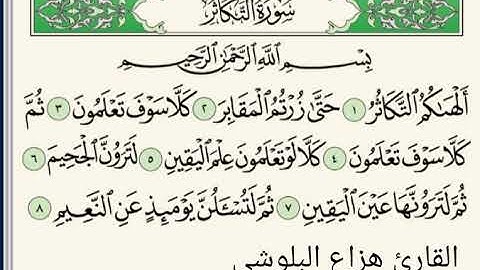 سُورَةُ التَّكَاثُرِ
بِسْمِ اللَّهِ الرَّحْمَٰنِ الرَّحِيمِ
أَلْهَىٰكُمُ ٱلتَّكَاثُرُ ١ حَتَّىٰ زُرْتُمُ ٱلْمَقَابِرَ ٢ كَلَّا سَوْفَ تَعْلَمُونَ ٣ ثُمَّ
كَلَّا سَوْفَ تَعْلَمُونَ ٤ كَلَّا لَوْ تَعْلَمُونَ عِلْمَ ٱلْيَقِينِ ٥ لَتَرَوُنَّ ٱلْجَحِيمَ ٦
ثُمَّ لَتَرَوُنَّهَا عَيْنَ ٱلْيَقِينِ ٧ ثُمَّ لَتُسْـَٔلُنَّ يَوْمَئِذٍ عَنِ ٱلنَّعِيمِ ٨
القارئ هزاع البلوشي